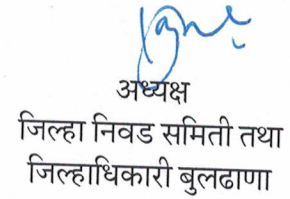 अध्यक्ष
जिल्हा निवड समिती तथा
जिल्हाधिकारी बुलढाणा